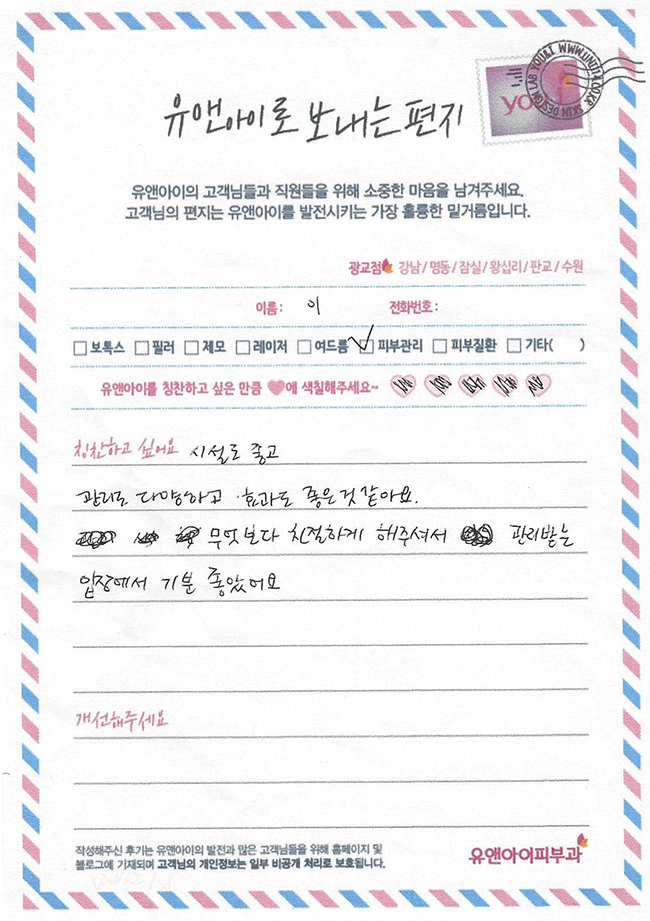 유앤아이로 보내는 편지
you&i
SKIN DESIGN LAB YOU&I WWW.UNI114.CO.KR
유앤아이의 고객님들과 직원들을 위해 소중한 마음을 남겨주세요.
고객님의 편지는 유앤아이를 발전시키는 가장 훌륭한 밑거름입니다.
광교점 강남/명동/잠실/왕십리/판교/수원
이름: 이 전화번호:
보톡스 필러 제모 레이저 여드름 피부관리 피부질환 기타( )
유앤아이를 칭찬하고 싶은 만큼 에 색칠해주세요~
칭찬하고 싶어요 시설도 좋고
관리도 다양하고 효과도 좋은것 같아요.
무엇보다 친절하게 해주셔서 관리받는
입장에서 기분 좋았어요
개선해주세요
작성해주신 후기는 유앤아이의 발전과 많은 고객님들을 위해 홈페이지 및
블로그에 기재되며 고객님의 개인정보는 일부 비공개 처리로 보호됩니다.
유앤아이피부과